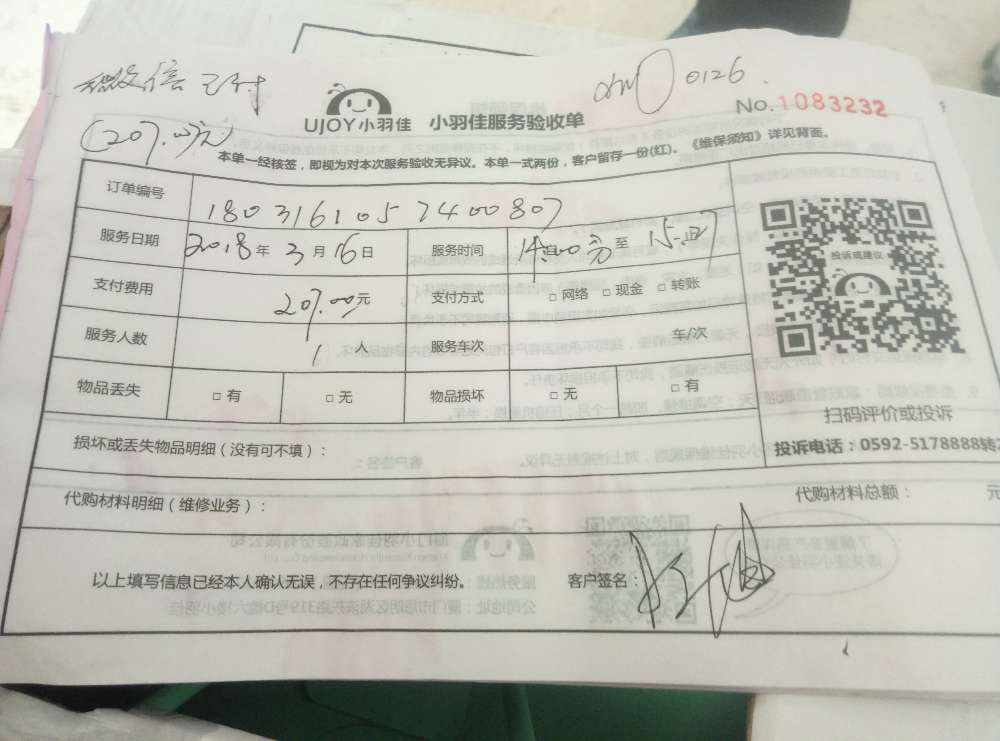 微信已付
(207.00元)
0126
UJOY小羽佳 小羽佳服务验收单
No.1083232
本单一经核签，即视为对本次服务验收无异议。本单一式两份，客户留存一份(红)。《维保须知》详见背面。
订单编号 1803161057400807
服务日期 2018年3月16日 服务时间 14:00 至
支付费用 207.00元 支付方式 □ 网络 □ 现金 □ 转账
服务人数 1人 服务车次 车/次
物品丢失 □ 有 □ 无 物品损坏 □ 无 □ 有
投诉或建议
扫码评价或投诉
投诉电话：0592-5178888转
损坏或丢失物品明细（没有可不填）：
代购材料明细（维修业务）： 代购材料总额： 元
以上填写信息已经本人确认无误，不存在任何争议纠纷。 客户签名：